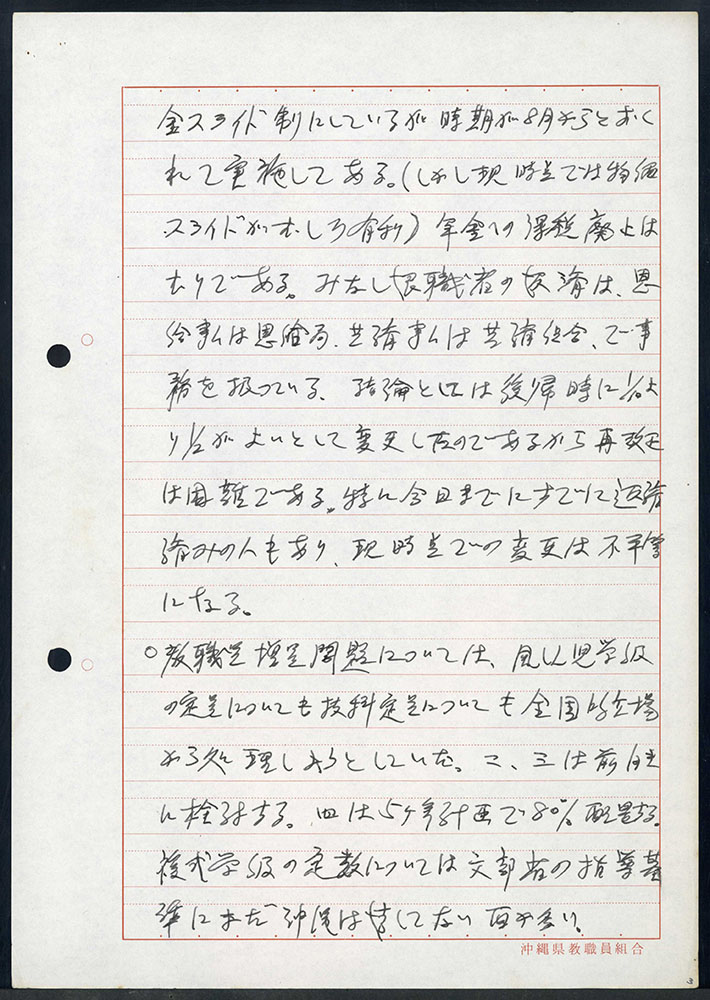 金スライド制にしているが時期が8月からとおく
れて実施してある。(しかし現時点では物価
スライドがむしろ有利)年金への課税廃止は
むりである。みなし退職者の返済は、恩
給事ムは恩給局、共済事ムは共済組合、で事
務を扱っている。結論としては復帰時に1/10よ
り1/2がよいとして変更したのであるから再改正
は困難である。特に今日まですでに返済
済みの人もあり、現時点での変更は不平等
になる。
○教職員増員問題については、児学級
の定員についても技科定員についても全国的立場
から処理しようとしていた。二、三は前向き
に検討する。四は5ヶ年計画で80%配置する。
複式学級の定数については文部省の指導基
準にまだ沖縄は達してない面が多い。
沖縄県教職員組合
3